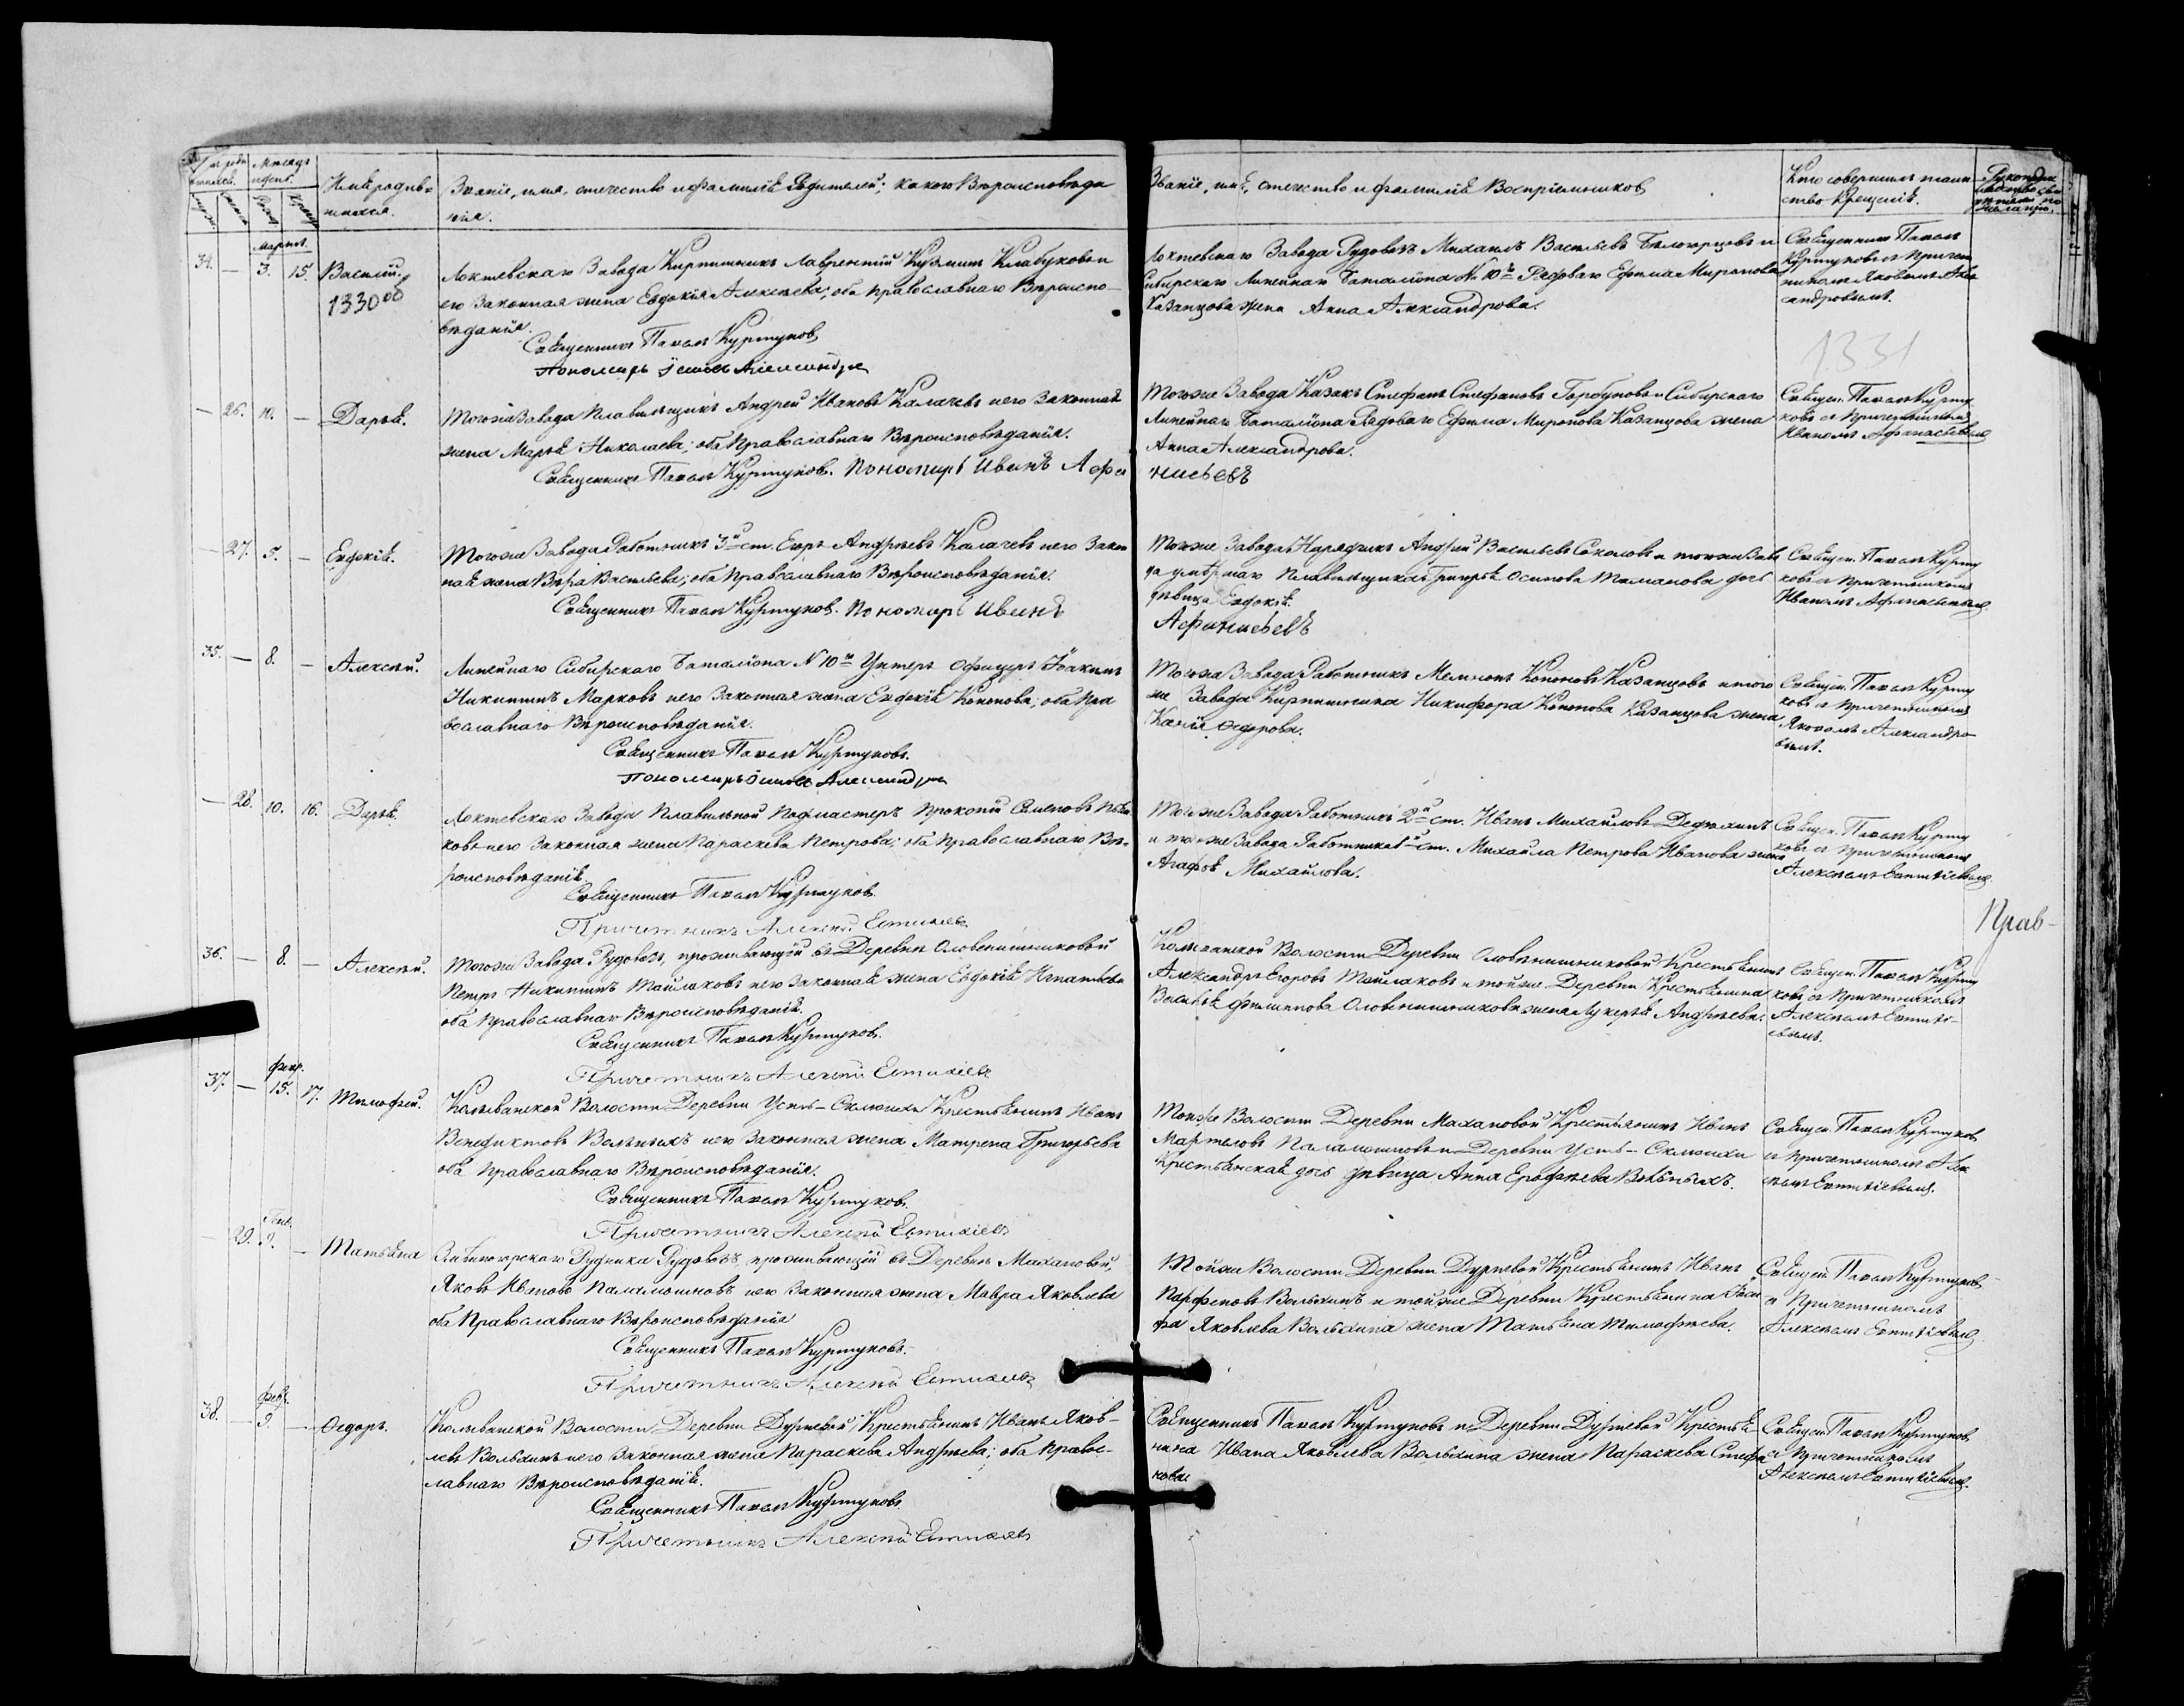 Мѣсяцъ
и день.
Имя родив-
шихся.
Званіе, имя, отчество и фамилія Родителей; какого Вѣроисповѣда
нія.
Званіе, имя, отчество и фамилія Воспріемниковъ
Кто совершилъ таин
ство Крещенія.
Мартъ.
34. — 3. 15. Василій.
1330
Локтевскаго Завода Кирпичникъ Лаврентій Кузминъ Клабуковъ и
его законная жена Евдокія Алексѣева; оба православнаго Вѣроиспо-
вѣданія.
Священникъ Павелъ Куртуковъ
Локтевскаго Завода Рудовозъ Михаилъ Васильевъ Бѣлогорцовъ и
Сибирскаго Линейнаго Баталіона № 10го Рядоваго Ефима Миронова
Казанцова жена Анна Александрова.
Священникъ Павелъ
Куртуковъ съ Причет
никомъ Яковомъ Алек
сандровымъ.
1331
— 26. 10. — Дарья.
Тогоже Завода Плавильщикъ Андрей Ивановъ Калачевъ и его законная
жена Марья Николаева; оба Православнаго Вѣроисповѣданія.
Священникъ Павелъ Куртуковъ. Пономарь Иванъ Афа
насьевъ
Тогоже Завода Казакъ Стефанъ Стефановъ Горбуновъ и Сибирскаго
Линейнаго Баталіона Рядоваго Ефима Миронова Казанцова жена
Анна Александрова.
Священ. Павелъ Курту
ковъ съ Причетникомъ
Иваномъ Афанасьевымъ
— 27. 5. — Евдокія.
Тогоже Завода Работникъ 3й ст. Егоръ Андреевъ Калачевъ и его Закон
ная жена Вѣра Васильева; оба Православнаго Вѣроисповѣданія.
Священникъ Павелъ Куртуковъ. Пономарь Иванъ
Афанасьевъ
Тогоже Завода Нарядчикъ Андрей Васильевъ Соколовъ и тогоже Заво
да умершаго Плавильщика Григорья Осипова Талманова дочь
дѣвица Евдокія.
Священ. Павелъ Курту
ковъ съ Причетникомъ
Иваномъ Афанасьевымъ.
35. — 8. — Алексѣй.
Линейнаго Сибирскаго Баталіона № 10го Унтеръ Офицеръ Іоакимъ
Никитинъ Марковъ и его Законная жена Евдокія Кононова; оба Пра
вославнаго Вѣроисповѣданія.
Священникъ Павелъ Куртуковъ.
Тогоже Завода Работникъ Мелентій Кононовъ Казанцовъ и того
же Завода Кирпичника Никифора Кононова Казанцова жена
Ксенія Ѳедорова.
Священ. Павелъ Курту
ковъ съ Причетникомъ
Яковомъ Александро-
вымъ.
— 28. 10. 16. Дарья.
Локтевскаго Завода Плавильной Подмастеръ Прокопій Семеновъ
ковъ и его Законная жена Параскева Петрова; оба православнаго Вѣ-
роисповѣданія.
Священникъ Павелъ Куртуковъ.
Причетникъ Алексѣй Евтихіевъ
Тогоже Завода Работникъ 2й ст. Иванъ Михайловъ Дедюхинъ
и тогоже Завода Работника ст. Михайла Петрова Иванова жена
Агафья Михайлова.
Священ. Павелъ Курту
ковъ съ Причетникомъ
Алексѣемъ Евтихіевымъ.
Прав-
36. — 8. — Алексѣй.
Тогоже Завода Рудовозъ, проживающій въ Деревнѣ Оловенишниковой
Петръ Никитинъ Тайлаковъ и его законная жена Евдокія Игнатьева
оба Православнаго Вѣроисповѣданія.
Священникъ Павелъ Куртуковъ.
Причетникъ Алексѣй Евтихіевъ
Колыванской Волости Деревни Оловянишниковой Крестьянинъ
Александръ Егоровъ Тайлаковъ и тойже Деревни Крестьянина
Василья Филиппова Оловянишникова жена Лукерья Андреева.
Священ. Павелъ Курту
ковъ съ Причетникомъ
Алексѣемъ Евтихі-
евымъ.
Февр.
37. — 15. 17. Тимофей.
Колыванской Волости Деревни Усть-Склюихи Крестьянинъ Иванъ
Венедиктовъ Вольныхъ и его Законная жена Матрена Григорьева
оба Православнаго Вѣроисповѣданія.
Священникъ Павелъ Куртуковъ.
Причетникъ Алексѣй Евтихіевъ
Тойже Волости Деревни Махановой Крестьянинъ Иванъ
Мартеловъ Паламошновъ и Деревни Усть-Склюихи
Крестьянская дочь дѣвица Анна Ерофѣева Вольныхъ.
Священ. Павелъ Куртуковъ
съ Причетникомъ Алек
сѣемъ Евтихіевымъ.
— 29. 9. — Татьяна
Змѣиногорскаго Рудника Рудовозъ, проживающій въ Деревнѣ Махановой,
Яковъ Ивановъ Паламошновъ и его Законная жена Мавра Яковлева
оба Православнаго Вѣроисповѣданія
Священникъ Павелъ Куртуковъ.
Причетникъ Алексѣй Евтихіевъ
Тойже Волости Деревни Дурневой Крестьянинъ Иванъ
Парфеновъ Вольхинъ и тойже Деревни Крестьянина Іоси
фа Яковлева Вольхина жена Татьяна Тимофѣева.
Священ. Павелъ Куртуковъ
съ Причетникомъ
Алексѣемъ Евтихіевымъ
Февр.
38. — 9. — Ѳедоръ.
Колыванской Волости Деревни Дурневой Крестьянинъ Иванъ Яков-
левъ Вольхинъ и его Законная жена Параскева Андреева; оба правос-
лавнаго Вѣроисповѣданія.
Священникъ Павелъ Куртуковъ
Причетникъ Алексѣй Евтихіевъ
Священникъ Павелъ Куртуковъ и Деревни Дурневой Крестья
нина Ивана Яковлева Вольхина жена Параскева Стефа
нова
Священ. Павелъ Куртуковъ
съ Причетникомъ
Алексѣемъ Евтихіевымъ.